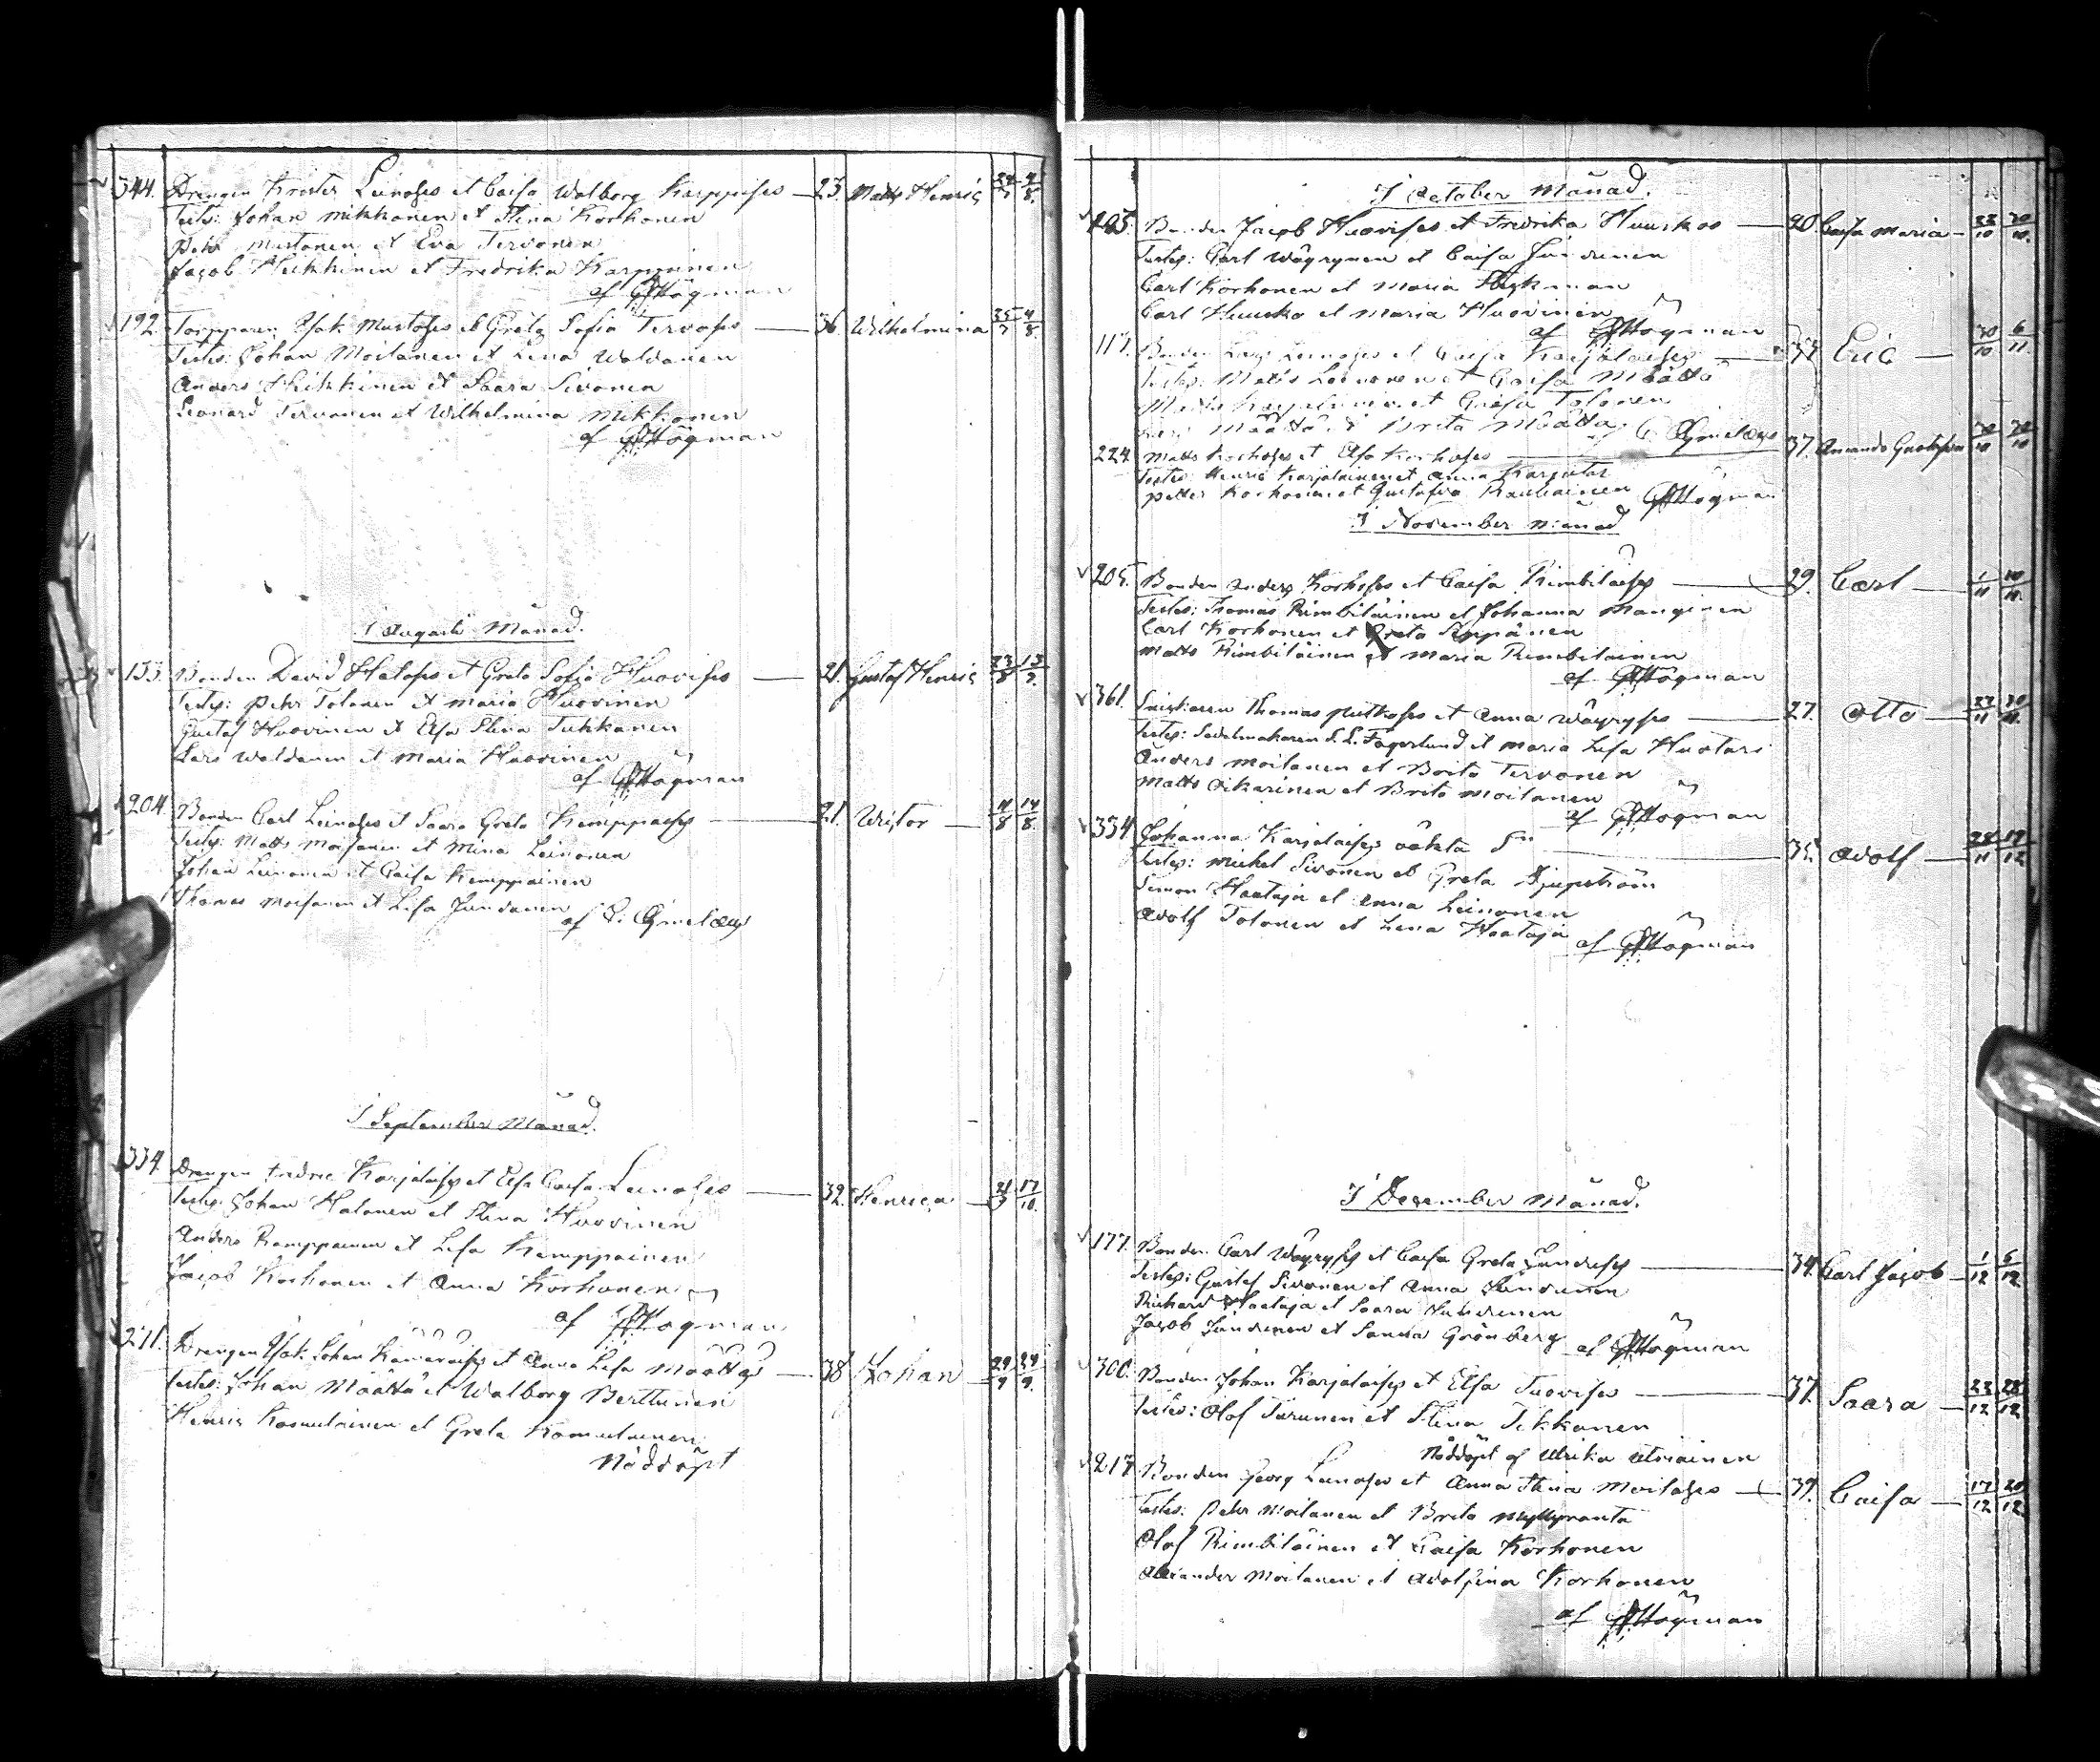 344. Drengen Krister Leinoſes et Caisa Walborg Karppises — 23. Matts Henric 4/8.
Testes: Johan Mikkonen et Stina Korhonen
Pehr Mustonen et Eva Tervonen
Jacob Heikkinen et Fredrika Karppinen
af Högman
192. Torpparen Isak Mustoses et Greta Sofia Tervoses — 36 Wilhelmina 25/7 4/8
Testes: Johan Moilanen et Lena Waldanen
Anders Heikkinen et Saara Sivonen
Leonard Tervonen et Wilhelmina Mikkonen
af Högman
I Augusti Månad.
133. Bonden David Hatoses et Greta Sofia Huovises — 21. Gustaf Henric
Testes: Pehr Tolonen et Maria Huovinen
Gustaf Huovinen et Elsa Stina Tukkanen
Lars Waldanen et Maria Huovinen
af Högman
204. Bonden Carl Leinoses et Saara Greta Kemppaises — 21. Wictor — 11/8 14/8.
Testes: Matts Moisanen et Mina Leinonen
Johan Leinonen et Caisa Kemppainen
Thomas Moisanen et Lisa Jundunen
af C. Cymelæus
I September Månad.
334. Drengen Fredric Karjalaises et Elsa Caisa Leinoses — 32. Henrica — 17/10.
Testes: Johan Halonen et Stina Huovinen
Anders Kemppainen et Lisa Kemppainen
Jacob Korhonen et Anna Korhonen
af Högman
211. Drengen Isak Johan et Anna Lisa Määttäs — 38 Johan — 29/9
Testes: Johan Määttä et Walborg Berttunen
Henric Komulainen et Greta Komulainen
Nöddöpt
I October Månad.
Bonden Jacob Huovises et Fredrika Huuskos — 20 Caisa Maria — 30/10.
Testes: Carl Wäyrynen et Caisa Jundunen
Carl Korhonen et Maria
Carl Huusko et Maria Huovinen
af Högman
117. Bonden Lars Leinoses et Caisa Karjalaises — 33 Eric — 30/10 6/11
Testes: Matts Leinonen et Caisa Määttä
Matts Karjalainen et Greta Tolonen
Määttä et Brita Määttä C. Cymelæus
224. Matts Korhoses et Elsa Korhoses — 37.
Testes: Henric Karjalainen et Anna
Petter Korhonen et Gustafva Rauhainen Högman
I November Månad
205. Bonden Anders Korhoses et Caisa Rimbiläises — 29. Carl — 1/11
Testes: Thomas Rimbiläinen et Johanna Manginen
Carl Korhonen et Greta Seppänen
Matts Rimbiläinen et Maria Rimbiläinen
af Högman
361. Thomas Putkoses et Anna Wäyryses — 27. Otto —
Testes: Sadelmakaren Fagerlund et Maria Lisa Huotari
Anders Moilanen et Brita Tervonen
Matts Oikarinen et Brita Moilanen
af Högman
334. Johanna Karjalaises oäkta son — 35. Adolf — 28/11 19/12
Testes: Mickel Sivonen et Greta
Simon Haataja et Anna Leinonen
Adolf Tolonen et Lena Haataja
af Högman
I December Månad.
177. Bonden Carl Wäyryses et Caisa Greta Junduses — 34. Carl Jacob — 1/12 6/12
Testes: Gustaf Sivonen et Anna Jundunen
Richard Haataja et Saara Jundunen
Jacob Jundunen et Sanna Grönberg
af Högman
300. Bonden Johan Karjalaises et Elsa Tuovises — 37. Saara — 23/12 28/12
Testes: Olof Turunen et Stina Tikkanen
Nöddöpt af Ulrika
217. Bonden Georg Leinoses et Anna Stina Moilases — 39. Caisa — 17/12 20/12.
Testes: Pehr Moilanen et Brita Myllyranta
Olof Rimbiläinen et Caisa Korhonen
Alexander Moilanen et Adolfina Korhonen
af Högman